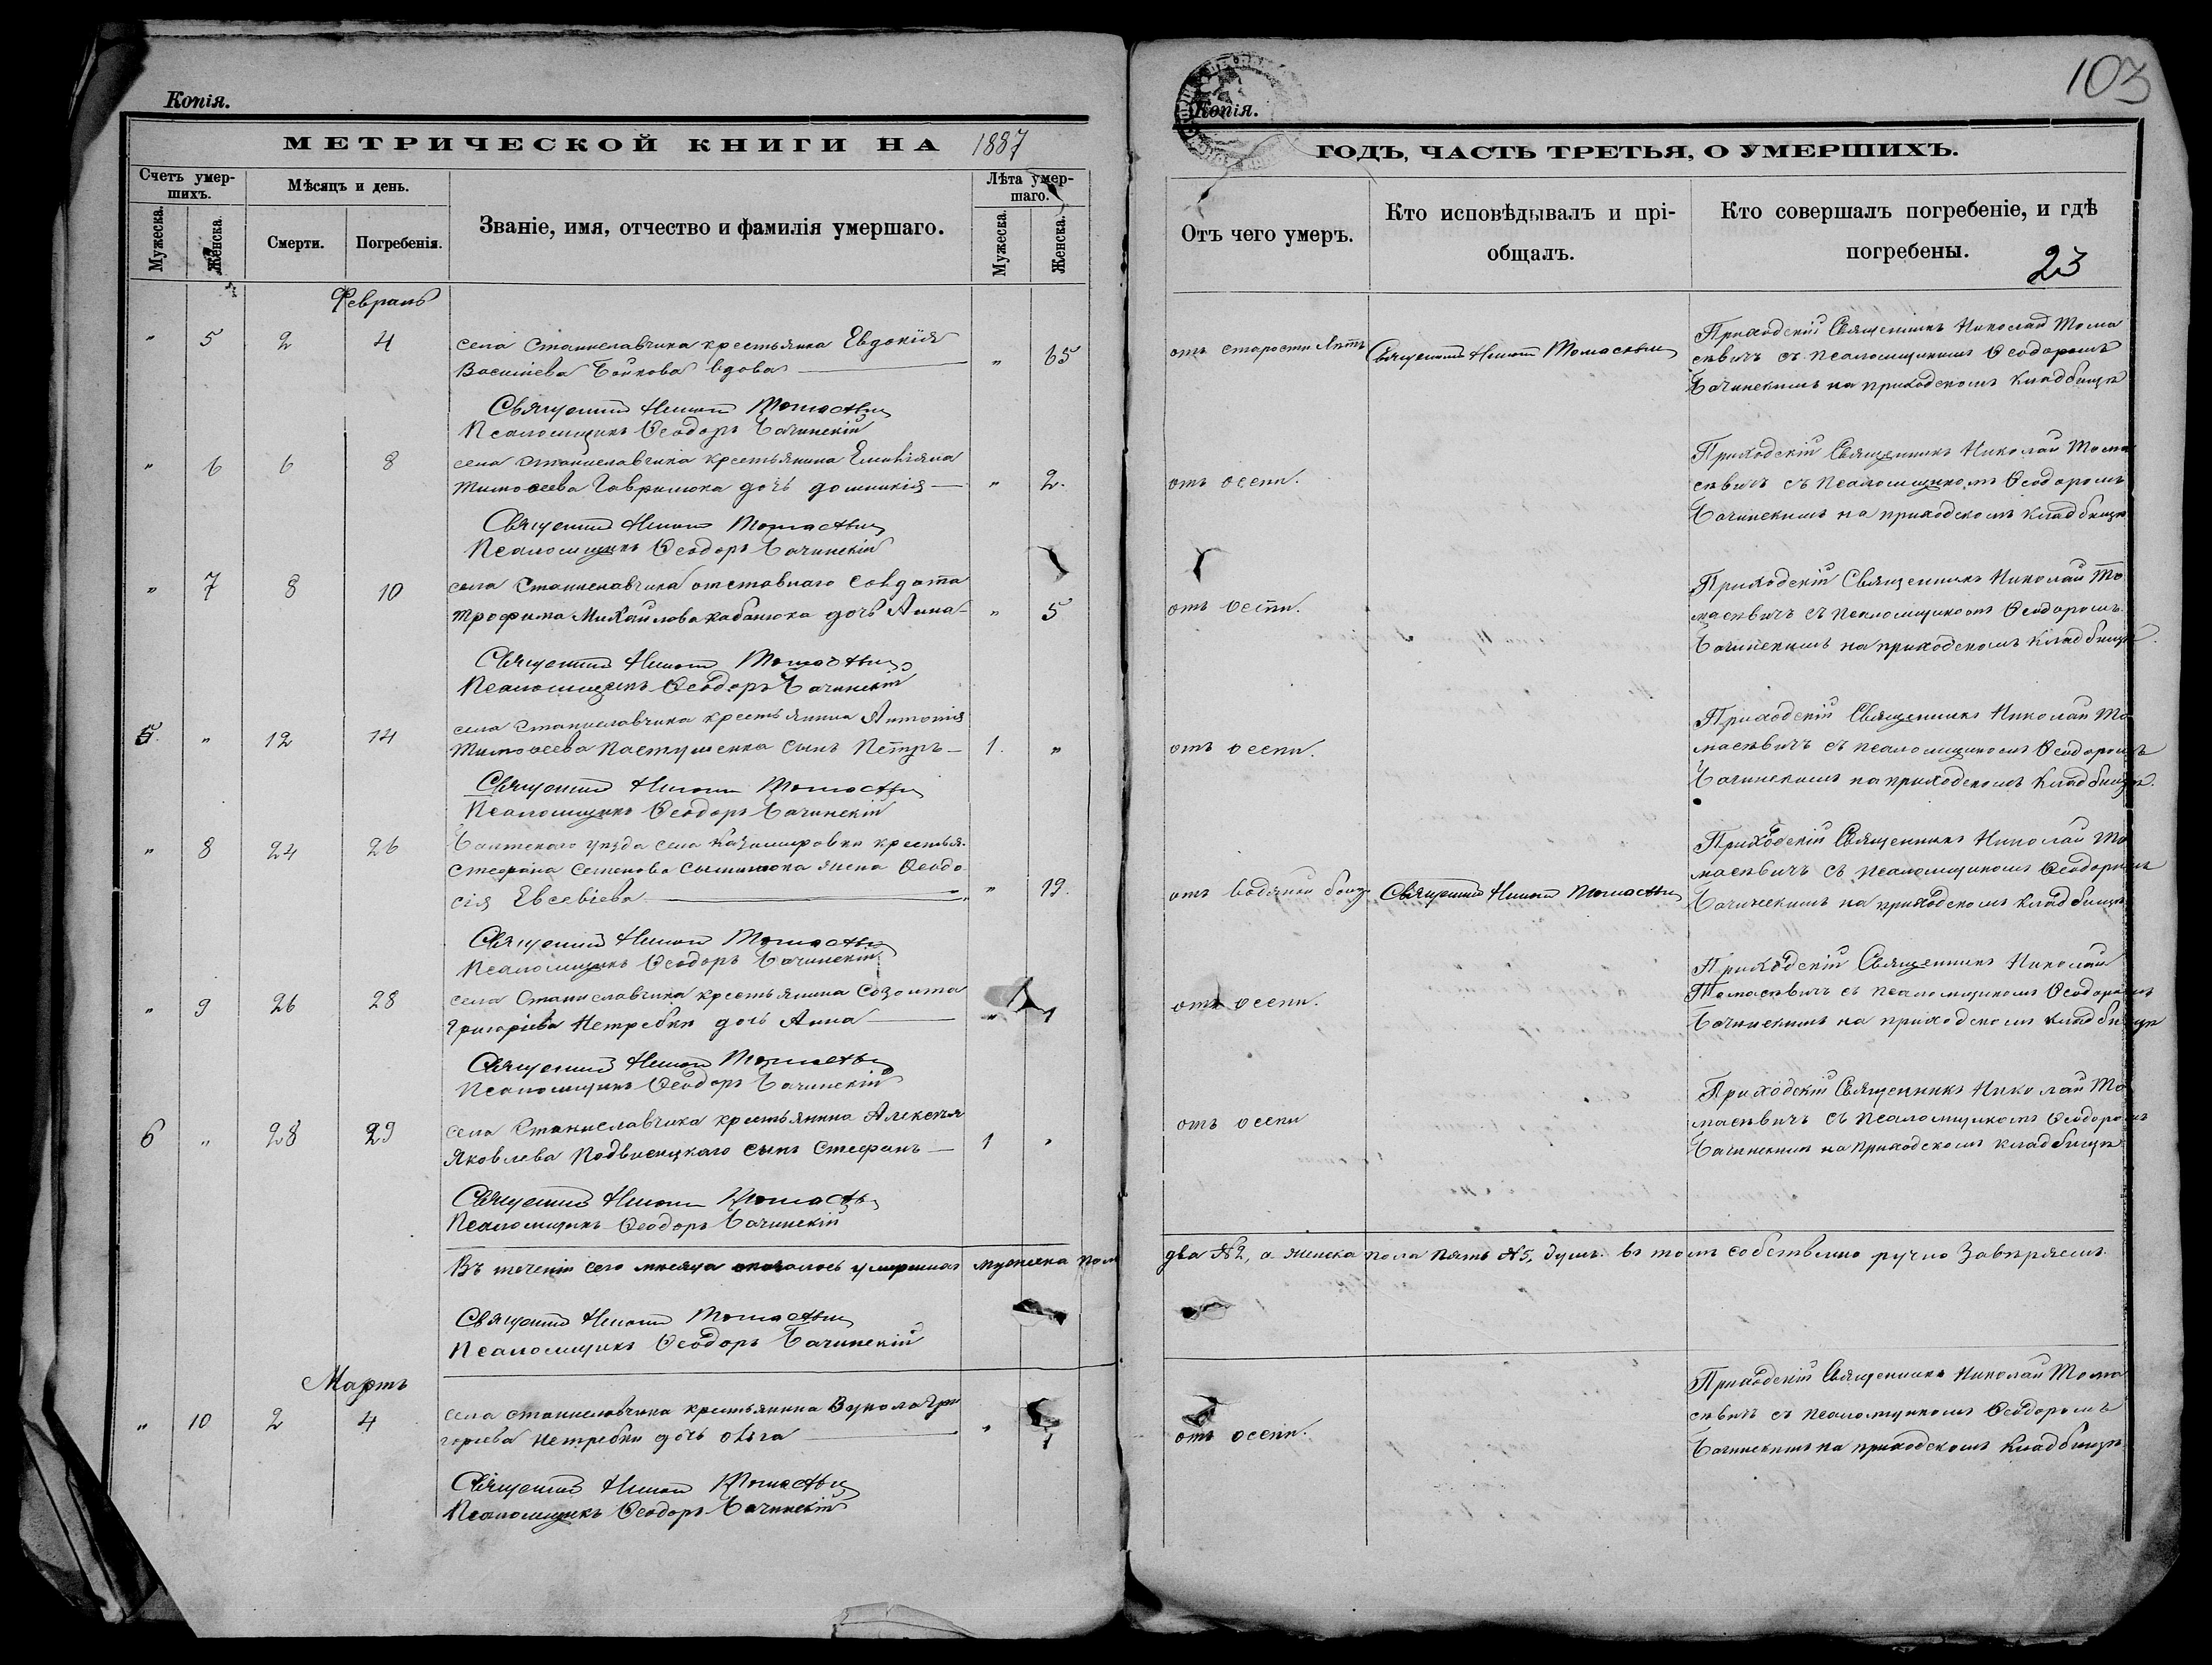 Копія.
МЕТРИЧЕСКОЙ КНИГИ НА 1887
Счетъ умер-
шихъ.
Мѣсяцъ и день.
Званіе, имя, отчество и фамилія умершаго.
Лѣта умер-
шаго.
Мужеска.
Женска.
Смерти.
Погребенія.
Мужеска.
Женска.
Февраль
" 5 2 4 села Станиславчика крестьянка Евдокія
Василіева Бойкова вдова " 65
Священникъ Николай Томасевич
Псаломщикъ Ѳеодоръ Бачинскій
" 6 6 8 села Станиславчика крестьянина Емиліяна
Тимоѳеева Гаврилюка дочь Домникія " 2.
Священникъ Николай Томасевич
Псаломщикъ Ѳеодоръ Бачинскій
" 7 8 10 села Станиславчика отставнаго солдата
Трофима Михайлова Кабанюка дочь Анна " 5
Священникъ Николай Томасевич
Псаломщикъ Ѳеодоръ Бачинскій
5. " 12 14 села Станиславчика крестьянина Антонія
Тимоѳеева Пастушенка сынъ Петръ 1. "
Священникъ Николай Томасевич
Псаломщикъ Ѳеодоръ Бачинскій
" 8 24 26 уѣзда села крестья.
Стефана Семенова жена Ѳеодо
сія Евсевіева " 19.
Священникъ Николай Томасевич
Псаломщикъ Ѳеодоръ Бачинскій
" 9 26 28 села Станиславчика крестьянина Созонта
Григоріева Нетребки дочь Анна " 1
Священникъ Николай Томасевич
Псаломщикъ Ѳеодоръ Бачинскій
6 " 28 29 села Станиславчика крестьянина Алексѣя
Яковлева Подвисоцкаго сынъ Стефанъ 1 "
Священникъ Николай Томасевич
Псаломщикъ Ѳеодоръ Бачинскій
Въ теченіи сего мѣсяца оказалось умершихъ мужеска пола
Священникъ Николай Томасевич
Псаломщикъ Ѳеодоръ Бачинскій
Мартъ
" 10 2 4 села Станиславчика крестьянина Вукола Гри
горіева Нетребки дочь Ольга " 1
Священникъ Николай Томасевич
Псаломщикъ Ѳеодоръ Бачинскій
103
Копія.
ГОДЪ, ЧАСТЬ ТРЕТЬЯ, О УМЕРШИХЪ.
Отъ чего умеръ.
Кто исповѣдывалъ и прі-
общалъ.
Кто совершалъ погребеніе, и гдѣ
погребены.
23
отъ старости лѣтъ
Священникъ Николай Томасевич
Приходскій Священникъ Николай Тома
севичъ съ псаломщикомъ Ѳеодоромъ
Бачинскимъ на приходскомъ кладбищѣ
отъ оспы.
Приходскій Священникъ Николай Тома
севичъ съ псаломщикомъ Ѳеодоромъ
Бачинскимъ на приходскомъ кладбищѣ
отъ оспы.
Приходскій Священникъ Николай То
масевичъ съ псаломщикомъ Ѳеодоромъ
Бачинскимъ на приходскомъ кладбищѣ.
отъ оспы.
Приходскій Священникъ Николай То
масевичъ съ псаломщикомъ Ѳеодоромъ
Бачинскимъ на приходскомъ кладбищѣ.
отъ водянки
Священникъ Николай Томасевич
Приходскій Священникъ Николай То
масевичъ съ псаломщикомъ Ѳеодоромъ
Бачинскимъ на приходскомъ кладбищѣ
отъ оспы.
Приходскій Священникъ Николай
Томасевичъ съ псаломщикомъ Ѳеодоромъ
Бачинскимъ на приходскомъ кладбищѣ
отъ оспы
Приходскій Священникъ Николай То
масевичъ съ псаломщикомъ Ѳеодоромъ
Бачинскимъ на приходскомъ кладбищѣ
два №2, а женска пола пять №5, душъ. въ томъ собственно ручно завѣряемъ.
отъ оспы.
Приходскій Священникъ Николай Тома
севичъ съ псаломщикомъ Ѳеодоромъ
Бачинскимъ на приходскомъ кладбищѣ